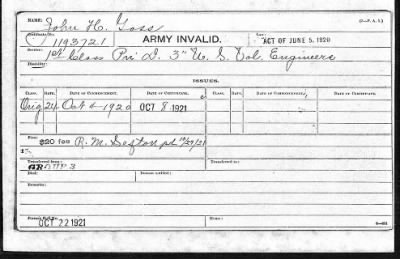 NAME: John H. Goss (3—F. A. I.)
Certificate No. 1193721 ARMY INVALID. Law: ACT OF JUNE 5, 1920
Service: 1st Class Pri D. 3" U. S. Vol. Engineers
ISSUES.
CLASS. RATE. DATE OF COMMENCEMENT. DATE OF CERTIFICATE. CLASS. RATE. DATE OF COMMENCEMENT. DATE OF CERTIFICATE.
Orig 24 Oct 4 1920 OCT 8 1921
Fees: $20 fee R. M. Sexton pd 10/29/21
Transferred from: Transferred to:
GROUP 3
Died: Issues cancelled:
Remarks:
Home:
OCT 22 1921